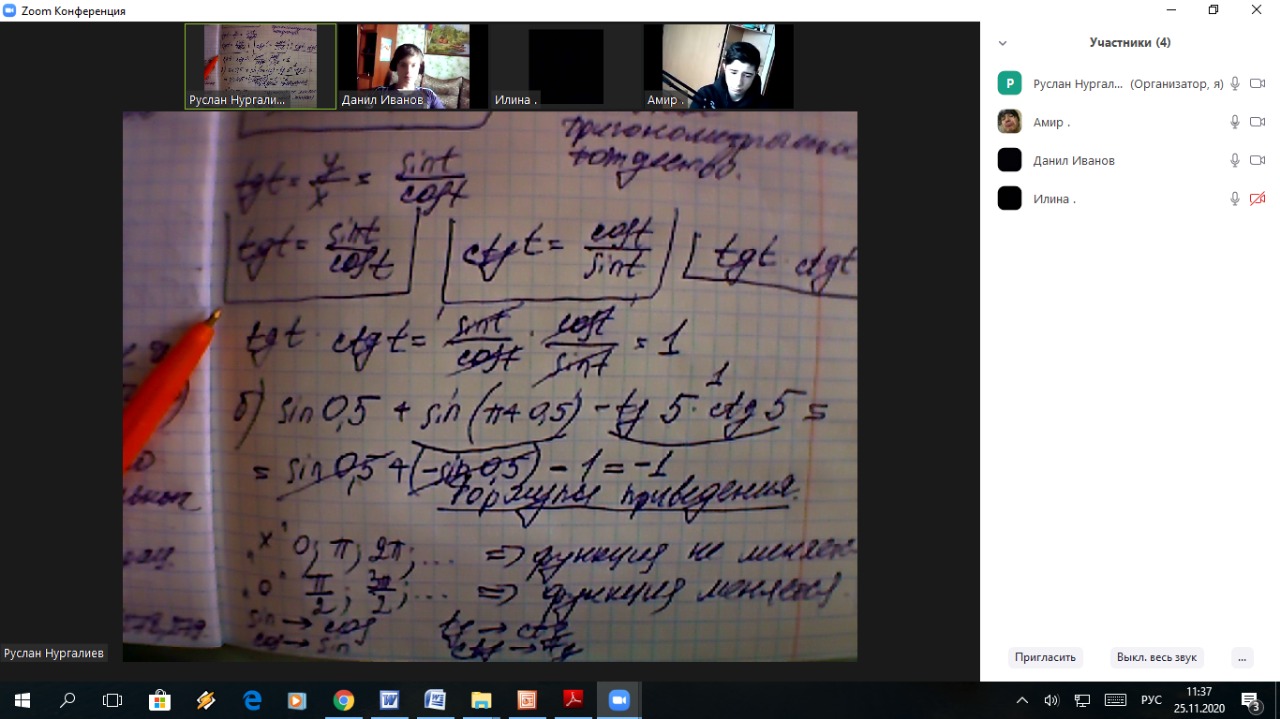 Zoom Конференция
Руслан Нургали...
Данил Иванов
Илина .
Амир .
Участники (4)
Руслан Нургал... (Организатор, я)
Амир .
Данил Иванов
Илина .
тождество.
tgt = y/x = sint/cost
tgt = sint/cost ctgt = cost/sint tgt · ctgt
tgt · ctgt = sint/cost · cost/sint = 1
1
б) sin 0,5 + sin (π + 0,5) - tg 5 · ctg 5 =
= sin 0,5 + (-sin 0,5) - 1 = -1
Формулы приведения.
"х" 0; π; 2π; ... => функция не меняет
"0" π/2; 3π/2; ... => функция меняется.
sin → cos tg → ctg
cos → sin ctg → tg
Руслан Нургалиев
Пригласить
Выкл. весь звук
...
РУС
11:37
25.11.2020
3